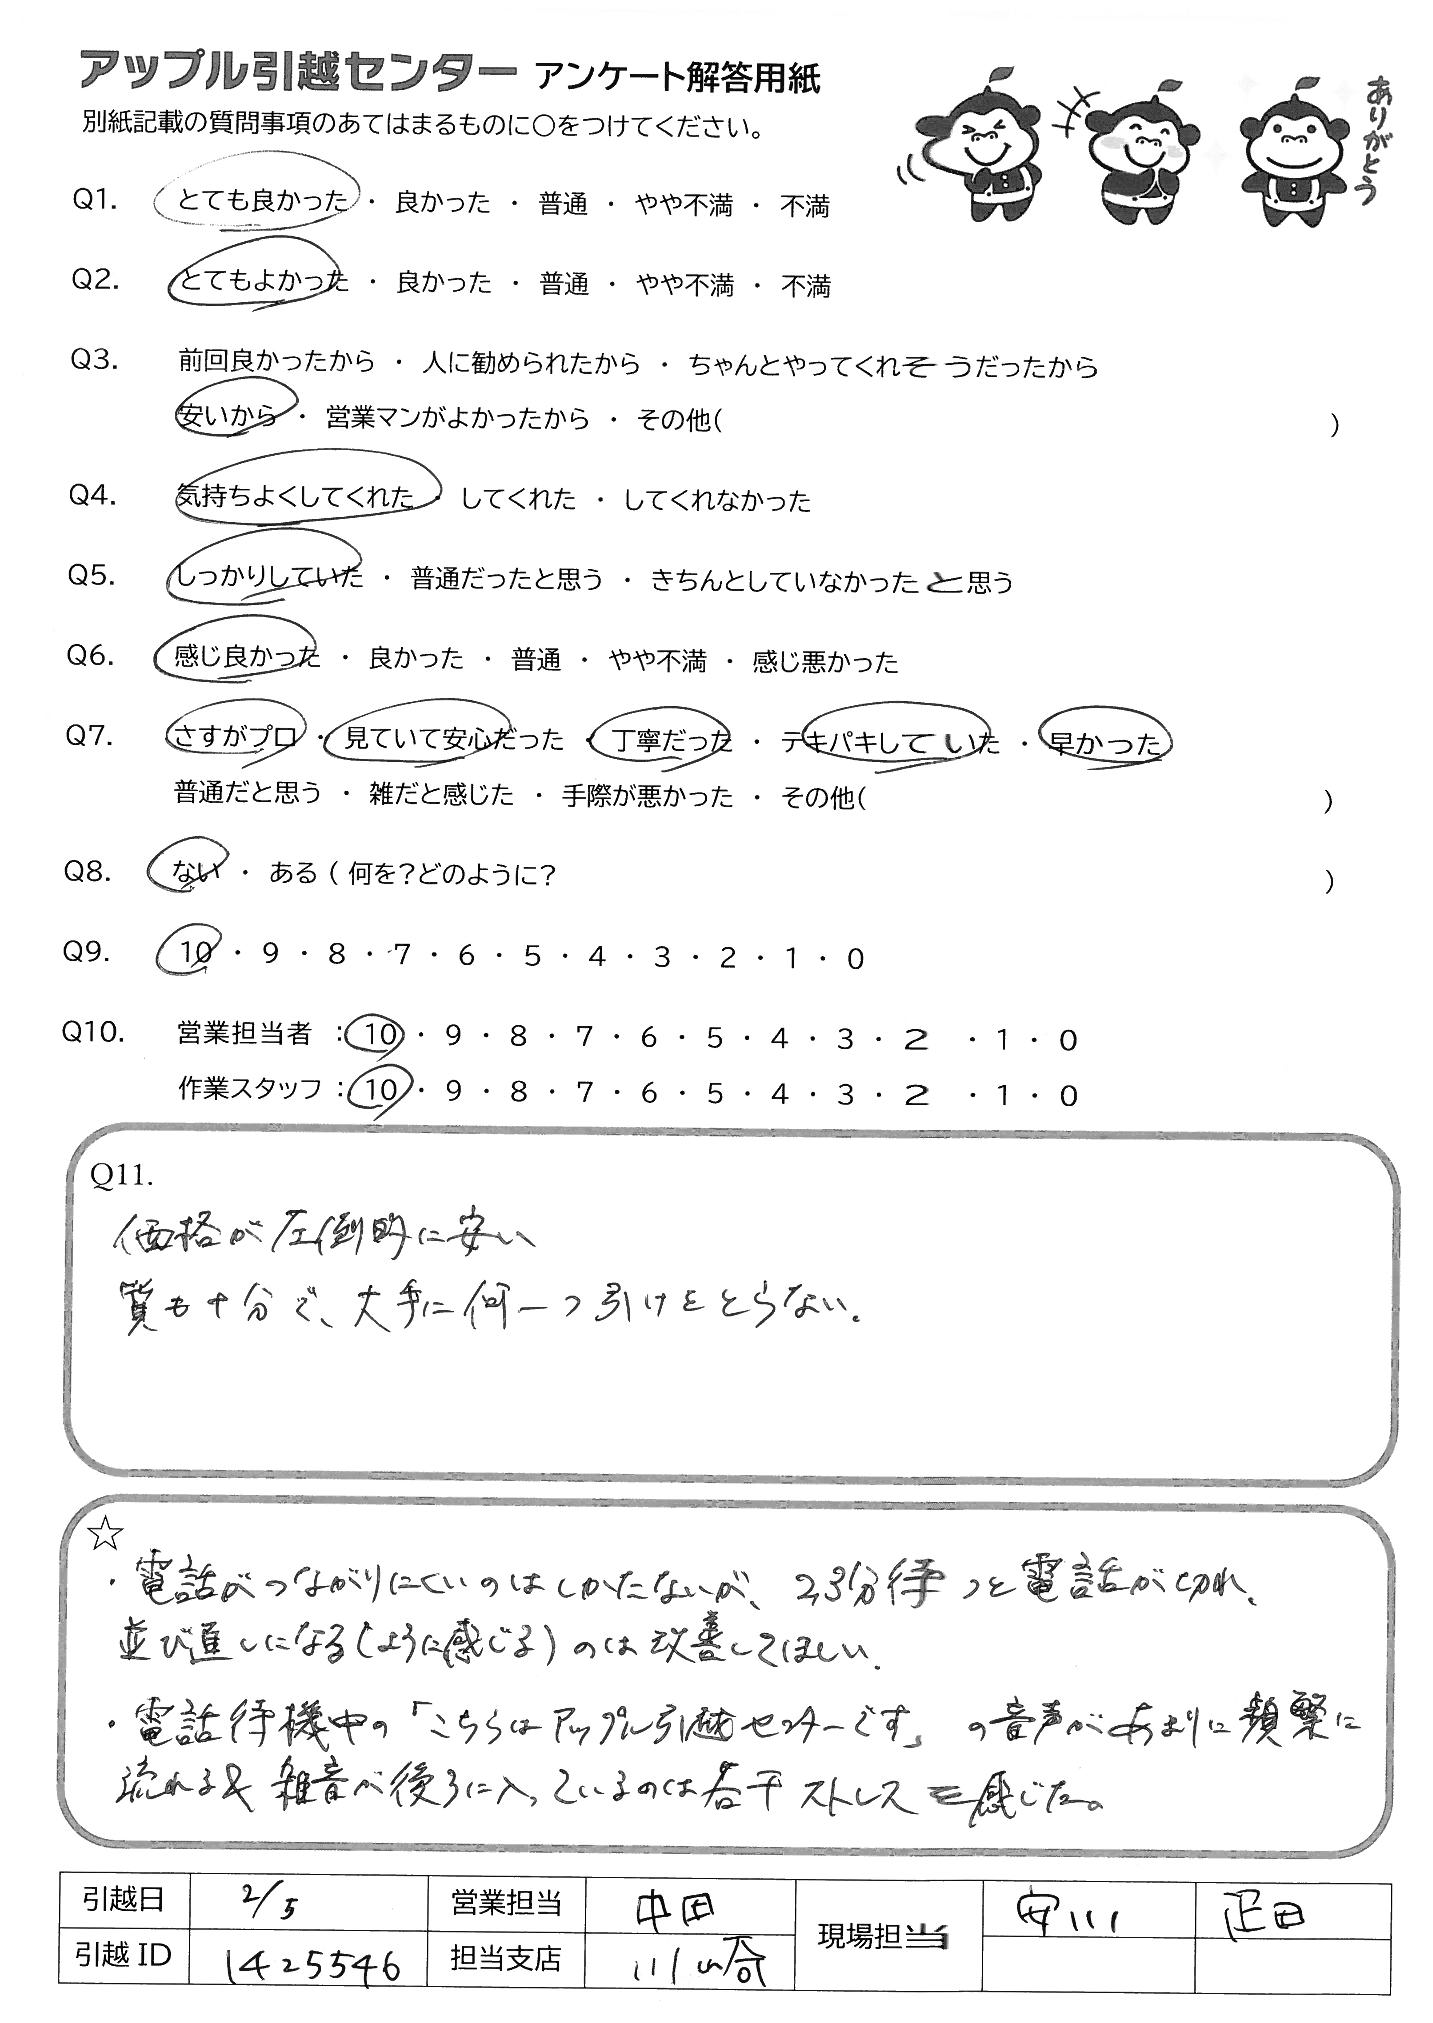 アップル引越センター アンケート解答用紙
別紙記載の質問事項のあてはまるものに○をつけてください。
ありがとう
Q1. とても良かった ・ 良かった ・ 普通 ・ やや不満 ・ 不満
Q2. とてもよかった ・ 良かった ・ 普通 ・ やや不満 ・ 不満
Q3. 前回良かったから ・ 人に勧められたから ・ ちゃんとやってくれそうだったから
安いから ・ 営業マンがよかったから ・ その他( )
Q4. 気持ちよくしてくれた ・ してくれた ・ してくれなかった
Q5. しっかりしていた ・ 普通だったと思う ・ きちんとしていなかったと思う
Q6. 感じ良かった ・ 良かった ・ 普通 ・ やや不満 ・ 感じ悪かった
Q7. さすがプロ ・ 見ていて安心だった ・ 丁寧だった ・ テキパキしていた ・ 早かった
普通だと思う ・ 雑だと感じた ・ 手際が悪かった ・ その他( )
Q8. ない ・ ある ( 何を?どのように? )
Q9. 10 ・ 9 ・ 8 ・ 7 ・ 6 ・ 5 ・ 4 ・ 3 ・ 2 ・ 1 ・ 0
Q10. 営業担当者 : 10 ・ 9 ・ 8 ・ 7 ・ 6 ・ 5 ・ 4 ・ 3 ・ 2 ・ 1 ・ 0
作業スタッフ : 10 ・ 9 ・ 8 ・ 7 ・ 6 ・ 5 ・ 4 ・ 3 ・ 2 ・ 1 ・ 0
Q11.
価格が圧倒的に安い
質も十分で、大手に何一つ引けをとらない。
☆
・電話がつながりにくいのはしかたないが、2,3分待つと電話が切れ、
並び直しになる(ように感じる)のは改善してほしい。
・電話待機中の「こちらはアップル引越センターです」の音声があまりに頻繁に
流れる& 雑音が後ろに入っているのは若干ストレスを感じた。
引越日 2/5 営業担当 中田 現場担当 安川 疋田
引越ID 1425546 担当支店 川崎